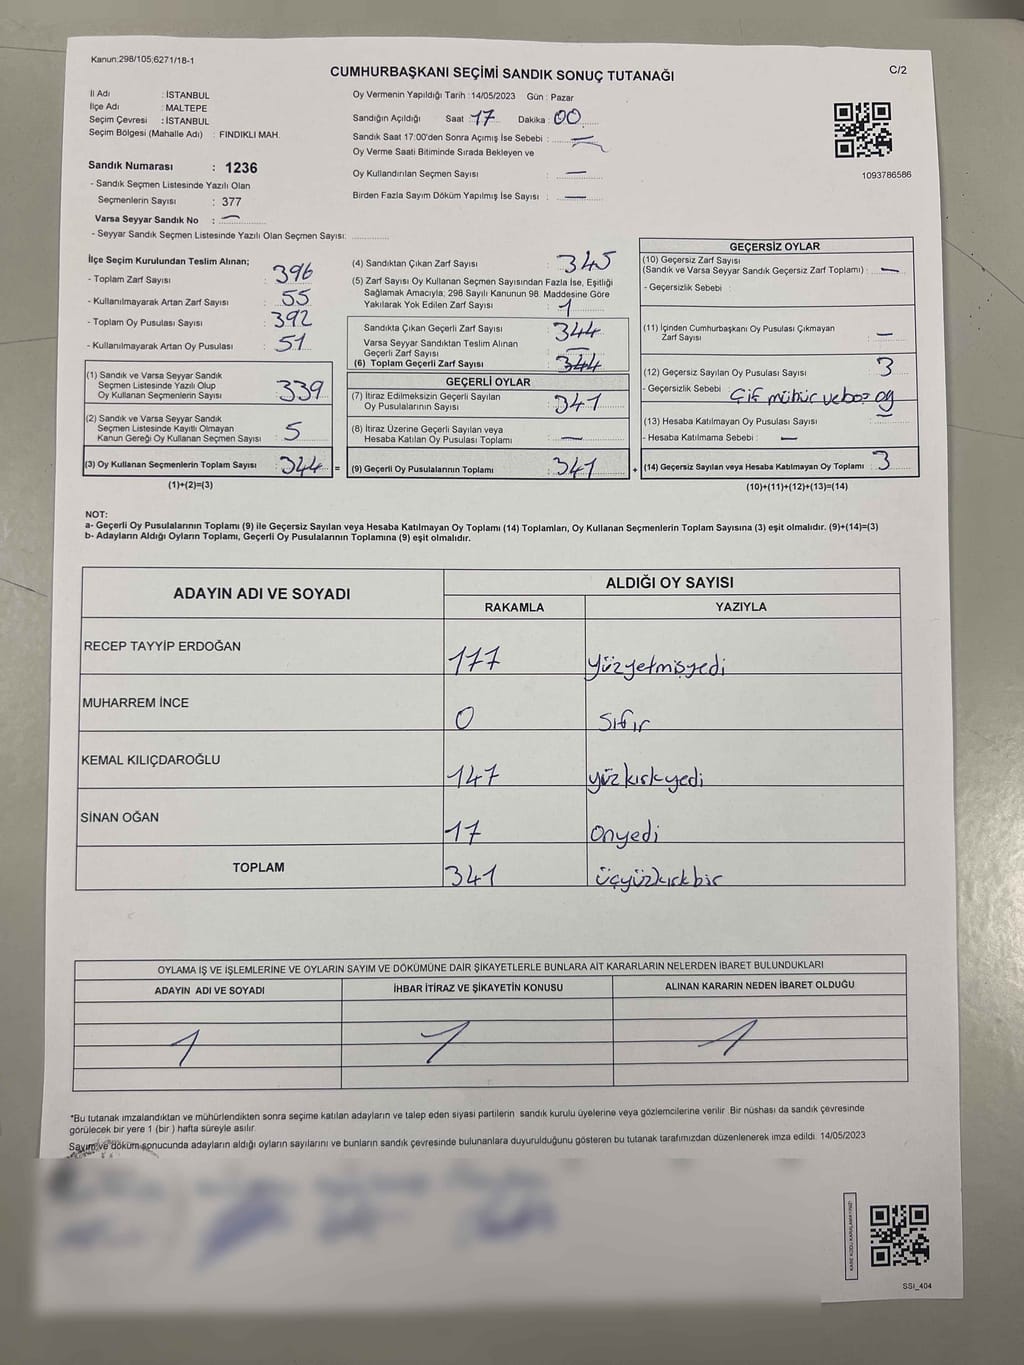 Kanun:298/105,6271/18-1
CUMHURBAŞKANI SEÇİMİ SANDIK SONUÇ TUTANAĞI
C/2
İl Adı : İSTANBUL
İlçe Adı : MALTEPE
Seçim Çevresi : İSTANBUL
Seçim Bölgesi (Mahalle Adı) : FINDIKLI MAH.
Oy Vermenin Yapıldığı Tarih :14/05/2023 Gün : Pazar
Sandığın Açıldığı Saat 17 Dakika : 00
Sandık Saat 17:00'den Sonra Açımış İse Sebebi : —
Oy Verme Saati Bitiminde Sırada Bekleyen ve
Oy Kullandırılan Seçmen Sayısı : —
Birden Fazla Sayım Döküm Yapılmış İse Sayısı : —
1093786586
Sandık Numarası : 1236
- Sandık Seçmen Listesinde Yazılı Olan
Seçmenlerin Sayısı : 377
Varsa Seyyar Sandık No : —
- Seyyar Sandık Seçmen Listesinde Yazılı Olan Seçmen Sayısı:
İlçe Seçim Kurulundan Teslim Alınan;
- Toplam Zarf Sayısı : 396
- Kullanılmayarak Artan Zarf Sayısı : 55
- Toplam Oy Pusulası Sayısı : 392
- Kullanılmayarak Artan Oy Pusulası : 51
(1) Sandık ve Varsa Seyyar Sandık
Seçmen Listesinde Yazılı Olup
Oy Kullanan Seçmenlerin Sayısı : 339
(2) Sandık ve Varsa Seyyar Sandık
Seçmen Listesinde Kayıtlı Olmayan
Kanun Gereği Oy Kullanan Seçmen Sayısı : 5
(3) Oy Kullanan Seçmenlerin Toplam Sayısı : 344 =
(1)+(2)=(3)
(4) Sandıktan Çıkan Zarf Sayısı : 345
(5) Zarf Sayısı Oy Kullanan Seçmen Sayısından Fazla İse, Eşitliği
Sağlamak Amacıyla; 298 Sayılı Kanunun 98. Maddesine Göre
Yakılarak Yok Edilen Zarf Sayısı : 1
Sandıkta Çıkan Geçerli Zarf Sayısı : 344
Varsa Seyyar Sandıktan Teslim Alınan
Geçerli Zarf Sayısı : —
(6) Toplam Geçerli Zarf Sayısı : 344
GEÇERLİ OYLAR
(7) İtiraz Edilmeksizin Geçerli Sayılan
Oy Pusulalarının Sayısı : 341
(8) İtiraz Üzerine Geçerli Sayılan veya
Hesaba Katılan Oy Pusulası Toplamı : —
(9) Geçerli Oy Pusulalarının Toplamı : 341 +
GEÇERSİZ OYLAR
(10) Geçersiz Zarf Sayısı
(Sandık ve Varsa Seyyar Sandık Geçersiz Zarf Toplamı) : —
- Geçersizlik Sebebi :
(11) İçinden Cumhurbaşkanı Oy Pusulası Çıkmayan
Zarf Sayısı : —
(12) Geçersiz Sayılan Oy Pusulası Sayısı : 3
- Geçersizlik Sebebi : Çif mühür ve boz oy
(13) Hesaba Katılmayan Oy Pusulası Sayısı : —
- Hesaba Katılmama Sebebi : —
(14) Geçersiz Sayılan veya Hesaba Katılmayan Oy Toplamı : 3
(10)+(11)+(12)+(13)=(14)
NOT:
a- Geçerli Oy Pusulalarının Toplamı (9) ile Geçersiz Sayılan veya Hesaba Katılmayan Oy Toplamı (14) Toplamları, Oy Kullanan Seçmenlerin Toplam Sayısına (3) eşit olmalıdır. (9)+(14)=(3)
b- Adayların Aldığı Oyların Toplamı, Geçerli Oy Pusulalarının Toplamına (9) eşit olmalıdır.
ADAYIN ADI VE SOYADI
ALDIĞI OY SAYISI
RAKAMLA YAZIYLA
RECEP TAYYİP ERDOĞAN 177 yüzyetmişyedi
MUHARREM İNCE 0 sıfır
KEMAL KILIÇDAROĞLU 147 yüzkırkyedi
SİNAN OĞAN 17 onyedi
TOPLAM 341 üçyüzkırkbir
OYLAMA İŞ VE İŞLEMLERİNE VE OYLARIN SAYIM VE DÖKÜMÜNE DAİR ŞİKAYETLERLE BUNLARA AİT KARARLARIN NELERDEN İBARET BULUNDUKLARI
ADAYIN ADI VE SOYADI İHBAR İTİRAZ VE ŞİKAYETİN KONUSU ALINAN KARARIN NEDEN İBARET OLDUĞU
*Bu tutanak imzalandıktan ve mühürlendikten sonra seçime katılan adayların ve talep eden siyasi partilerin sandık kurulu üyelerine veya gözlemcilerine verilir. Bir nüshası da sandık çevresinde
görülecek bir yere 1 (bir ) hafta süreyle asılır.
Sayım ve döküm sonucunda adayların aldığı oyların sayılarını ve bunların sandık çevresinde bulunanlara duyurulduğunu gösteren bu tutanak tarafımızdan düzenlenerek imza edildi. 14/05/2023
KARE KODU KARALAMAYINIZ!
SSI_404